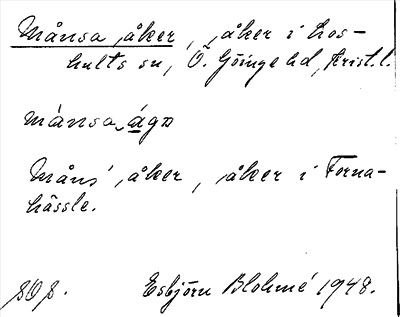 Månsa åker, åker i Los-
hults sn, Ö. Göinge hd, Krist. l.
månsa ága
Måns' åker, åker i Forna-
hässle.
Esbjörn Blohmé 1948.